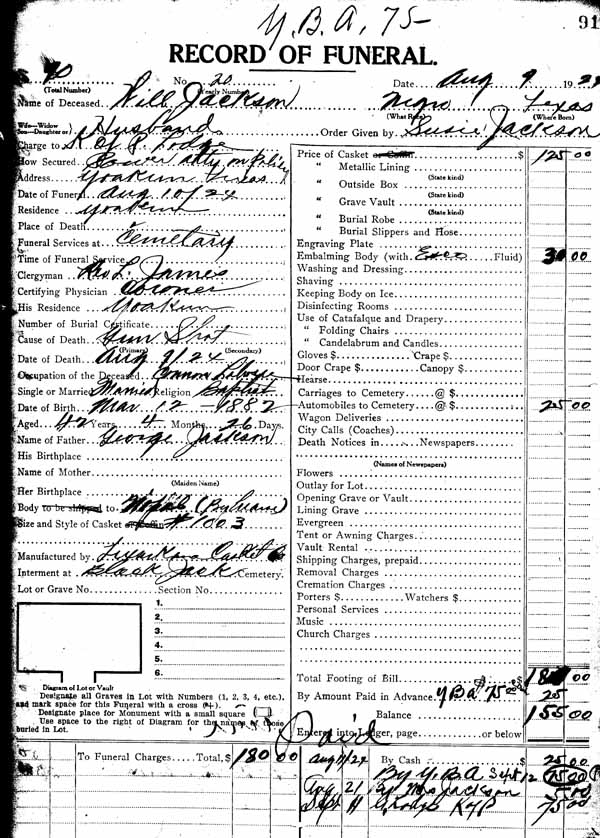 Y.B.A. 75-
91
RECORD OF FUNERAL.
(Total Number) No. 20 (Yearly Number) Date Aug 9 1924
Name of Deceased Will Jackson Negro (What Race) Texas (Where Born)
Wife—Widow Son—Daughter of Husband Order Given by Susie Jackson
Charge to K of P. Lodge
How Secured
Address Yoakum Texas
Date of Funeral Aug 10/24
Residence Yoakum
Place of Death
Funeral Services at Cemetary
Time of Funeral Service
Clergyman Rev L. James
Certifying Physician Coroner
His Residence Yoakum
Number of Burial Certificate
Cause of Death Gun Shot
(Primary) (Secondary)
Date of Death Aug 9/24
Occupation of the Deceased Common Labore
Single or Married Married Religion Baptist
Date of Birth Mar 12 - 1882
Aged 42 Years 4 Months 26 Days
Name of Father George Jackson
His Birthplace
Name of Mother
(Maiden Name)
Her Birthplace
Body to be shipped to
Size and Style of Casket or Coffin # 1003
Manufactured by Texarkana Casket Co
Interment at Black Jack Cemetery.
Lot or Grave No. Section No.
1.
2.
3.
4.
5.
6.
Diagram of Lot or Vault
Designate all Graves in Lot with Numbers (1, 2, 3, 4, etc.),
and mark space for this Funeral with a cross (+).
Designate place for Monument with a small square
Use space to right of Diagram for the names of those
buried in Lot.
Price of Casket or Coffin $ 125 00
" Metallic Lining
(State kind)
" Outside Box
(State kind)
" Grave Vault
(State kind)
" Burial Robe
(State kind)
" Burial Slippers and Hose
Engraving Plate
Embalming Body (with Fluid) 30 00
Washing and Dressing
Shaving
Keeping Body on Ice
Disinfecting Rooms
Use of Catafalque and Drapery
" Folding Chairs
" Candelabrum and Candles
Gloves $ Crape $
Door Crape $ Canopy $
Hearse
Carriages to Cemetery @ $
Automobiles to Cemetery @ $ 25 00
Wagon Deliveries
City Calls (Coaches)
Death Notices in Newspapers
(Names of Newspapers)
Flowers
Outlay for Lot
Opening Grave or Vault
Lining Grave
Evergreen
Tent or Awning Charges
Vault Rental
Shipping Charges, prepaid
Removal Charges
Cremation Charges
Porters $ Watchers $
Personal Services
Music
Church Charges
Total Footing of Bill $ 180 00
By Amount Paid in Advance Y B A 75 00 25
Balance 155 00
Entered into Ledger, page or below
Paid
To Funeral Charges Total, $ 180 00
Aug 11/24 By Cash $ 25 00
By Y.B.A Sept 12 75 00
Aug 21 By Mrs Jackson 5 00
Sept 11 K of P 75 00